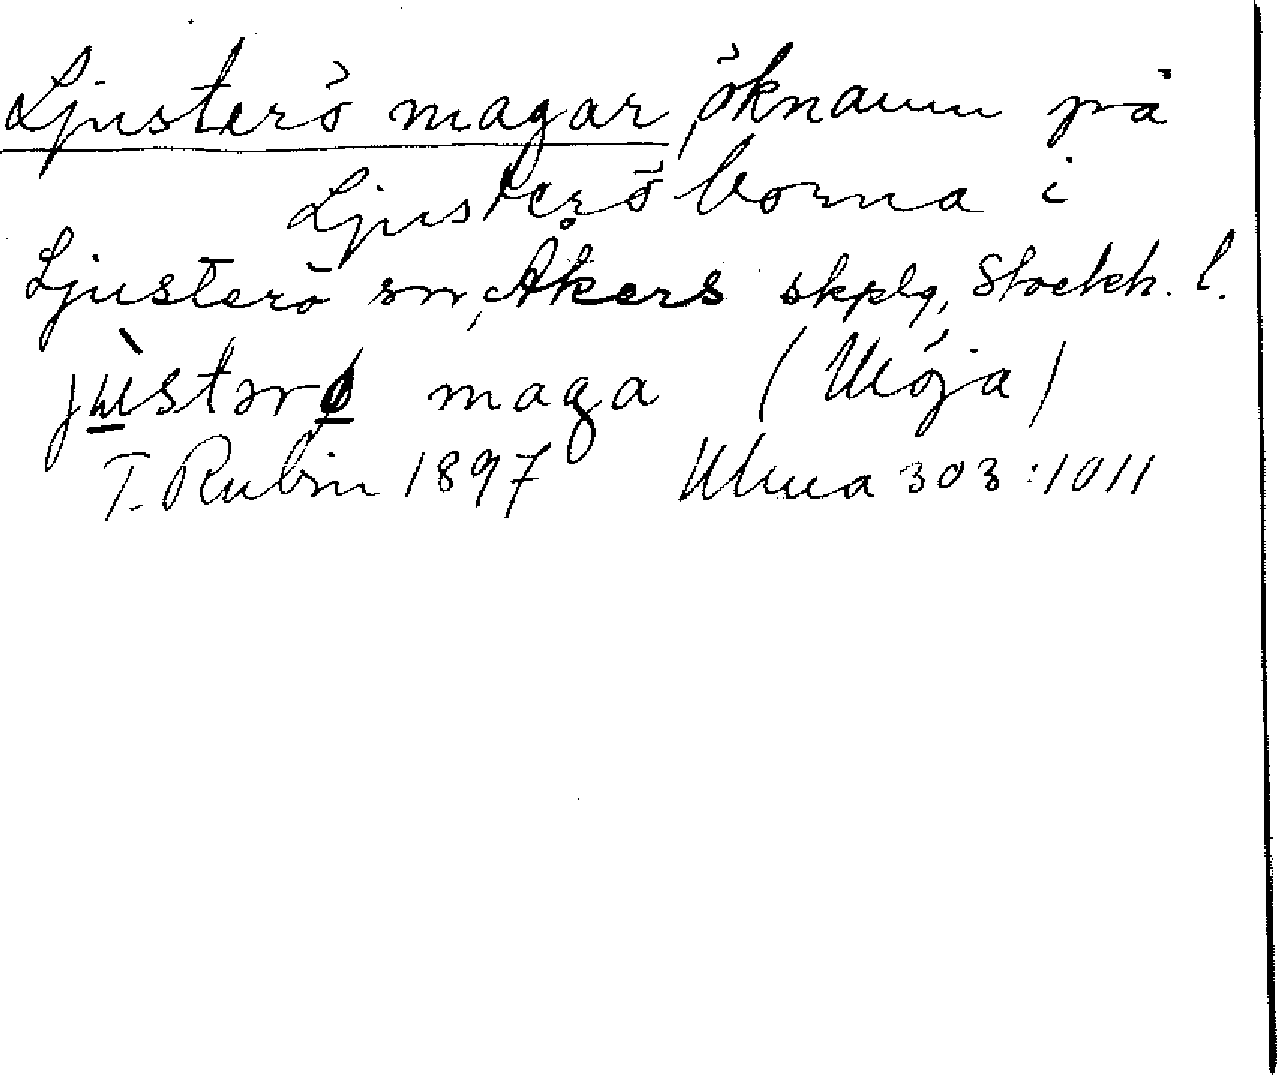 Ljusterö magar, öknamn på
Ljusteröborna i
Ljusterö sn, Åkers skplg, Stockh. l.
jùstərø maga (Möja)
T. Rubin 1897 Uluma 303:1011